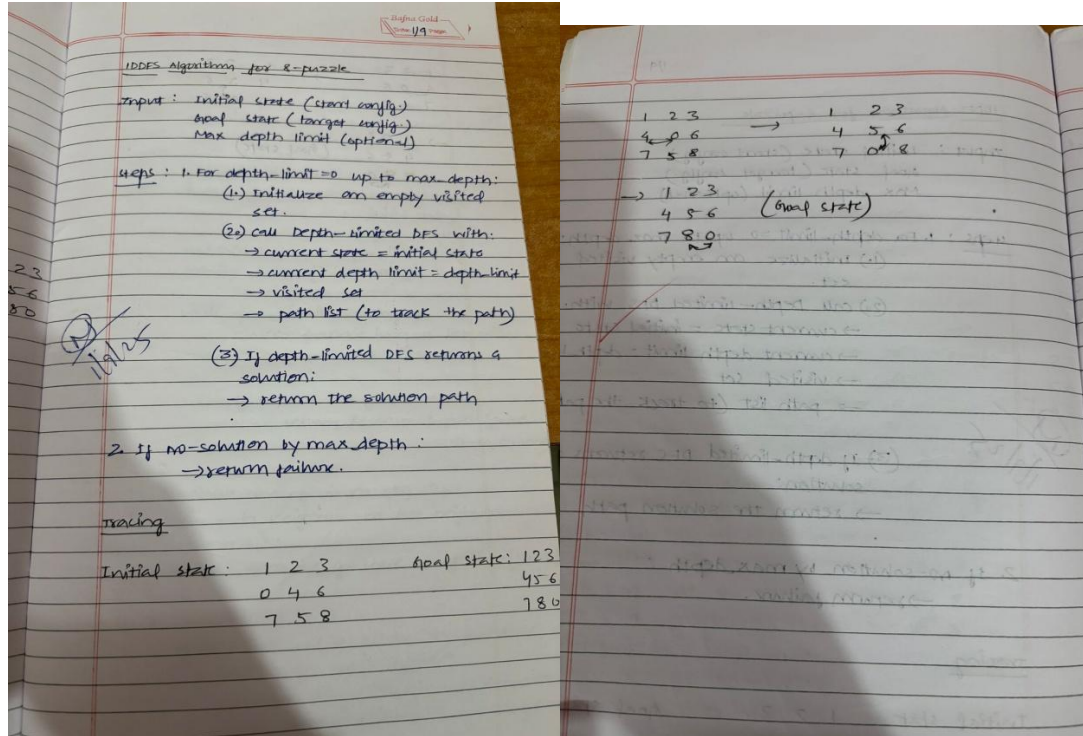 Bafna Gold
Date: 1/9 Page:
IDDFS Algorithm for 8-puzzle
Input : Initial state (start config.)
Goal state (target config.)
Max depth limit (optional)
Steps : 1. For depth-limit = 0 up to max_depth:
(1.) Initialize an empty visited
set.
(2.) call Depth-Limited DFS with:
→ current state = initial state
→ current depth limit = depth-limit
→ visited set
→ path list (to track the path)
(3) If depth-limited DFS returns a
solution:
→ return the solution path
2. If no-solution by max_depth :
→ return failure.
Tracing
Initial state : 1 2 3 Goal state : 1 2 3
0 4 6 4 5 6
7 5 8 7 8 0
2 3
5 6
8 0
1/9/25
1 2 3 → 1 2 3
4 0 6 4 5 6
7 5 8 7 0 8
→ 1 2 3
4 5 6 (Goal state)
7 8 0